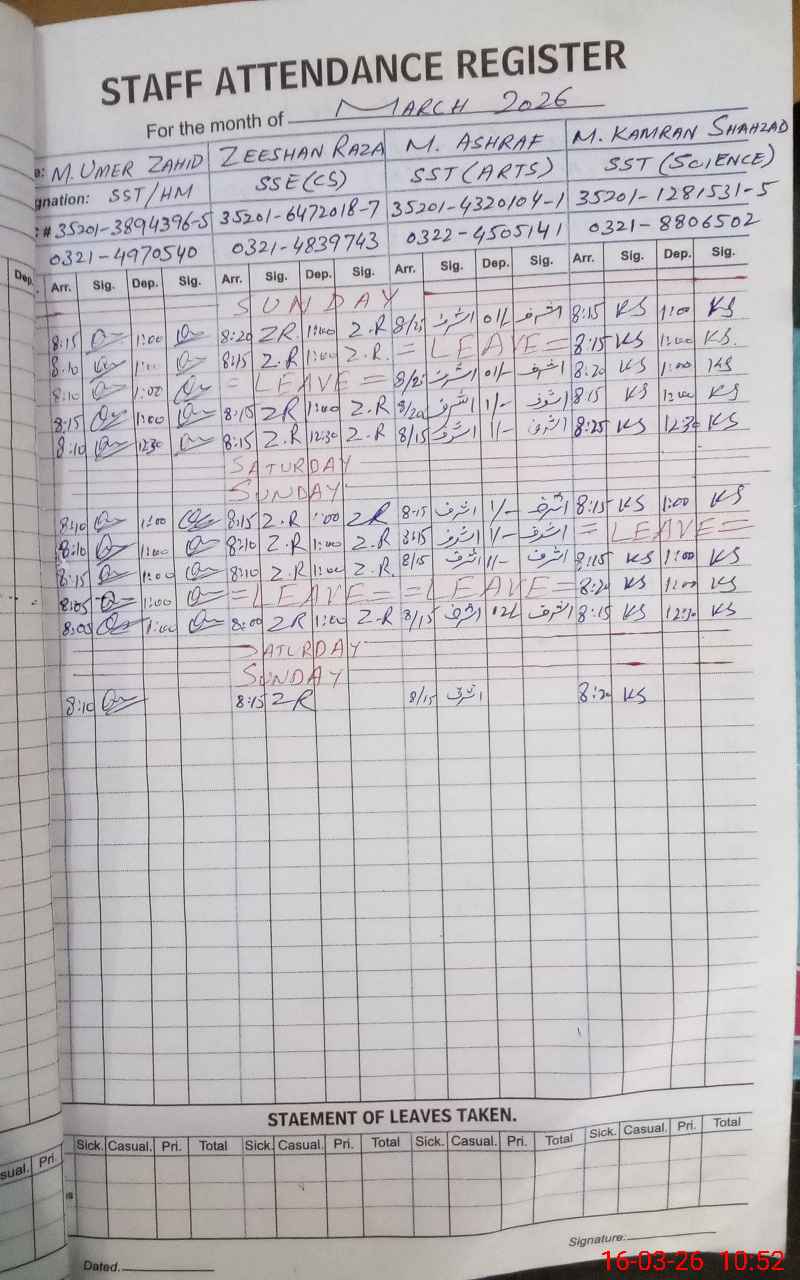 STAFF ATTENDANCE REGISTER
For the month of MARCH 2026
M. UMER ZAHID ZEESHAN RAZA M. ASHRAF M. KAMRAN SHAHZAD
gnation: SST/HM SSE(CS) SST(ARTS) SST(SCIENCE)
# 35201-3894396-5 35201-6472018-7 35201-4320104-1 35201-1281531-5
0321-4970540 0321-4839743 0322-4505141 0321-8806502
Dep. Arr. Sig. Dep. Sig. Arr. Sig. Dep. Sig. Arr. Sig. Dep. Sig. Arr. Sig. Dep. Sig.
SUNDAY
8:15 1:00 8:20 ZR 1:00 Z.R 8/25 اشرف اشرف 8:15 KS 1:00 KS
8:10 1:00 8:15 Z.R 1:00 Z.R. = LEAVE = 8:15 KS 1:00 KS.
8:10 1:00 = LEAVE = 8/25 اشرف اشرف 8:20 KS 1:00 KS
8:15 1:00 8:15 ZR 1:00 Z.R 8/20 اشرف 1/- اشرف 8:15 KS 1:00 KS
8:10 12:30 8:15 Z.R 12:30 Z.R 8/15 اشرف 1/- اشرف 8:25 KS 12:30 KS
SATURDAY
SUNDAY
8:10 1:00 8:15 Z.R 1:00 ZR 8:15 اشرف 1/- اشرف 8:15 KS 1:00 KS
8:10 1:00 8:10 Z.R 1:00 Z.R اشرف 1/- اشرف = LEAVE =
8:15 1:00 8:10 Z.R 1:00 Z.R. 8/15 اشرف 1/- اشرف 8:15 KS 1:00 KS
8:05 1:00 = LEAVE = = LEAVE = 8:20 KS 1:00 KS
8:00 1:00 8:00 ZR 1:00 Z.R 8/15 اشرف اشرف 8:15 KS 12:30 KS
SATURDAY
SUNDAY
8:10 8:15 ZR 8/15 اشرف 8:20 KS
STAEMENT OF LEAVES TAKEN.
sual. Pri. Sick. Casual. Pri. Total Sick. Casual. Pri. Total Sick. Casual. Pri. Total Sick. Casual. Pri. Total
Dated. Signature:
16-03-26 10:52